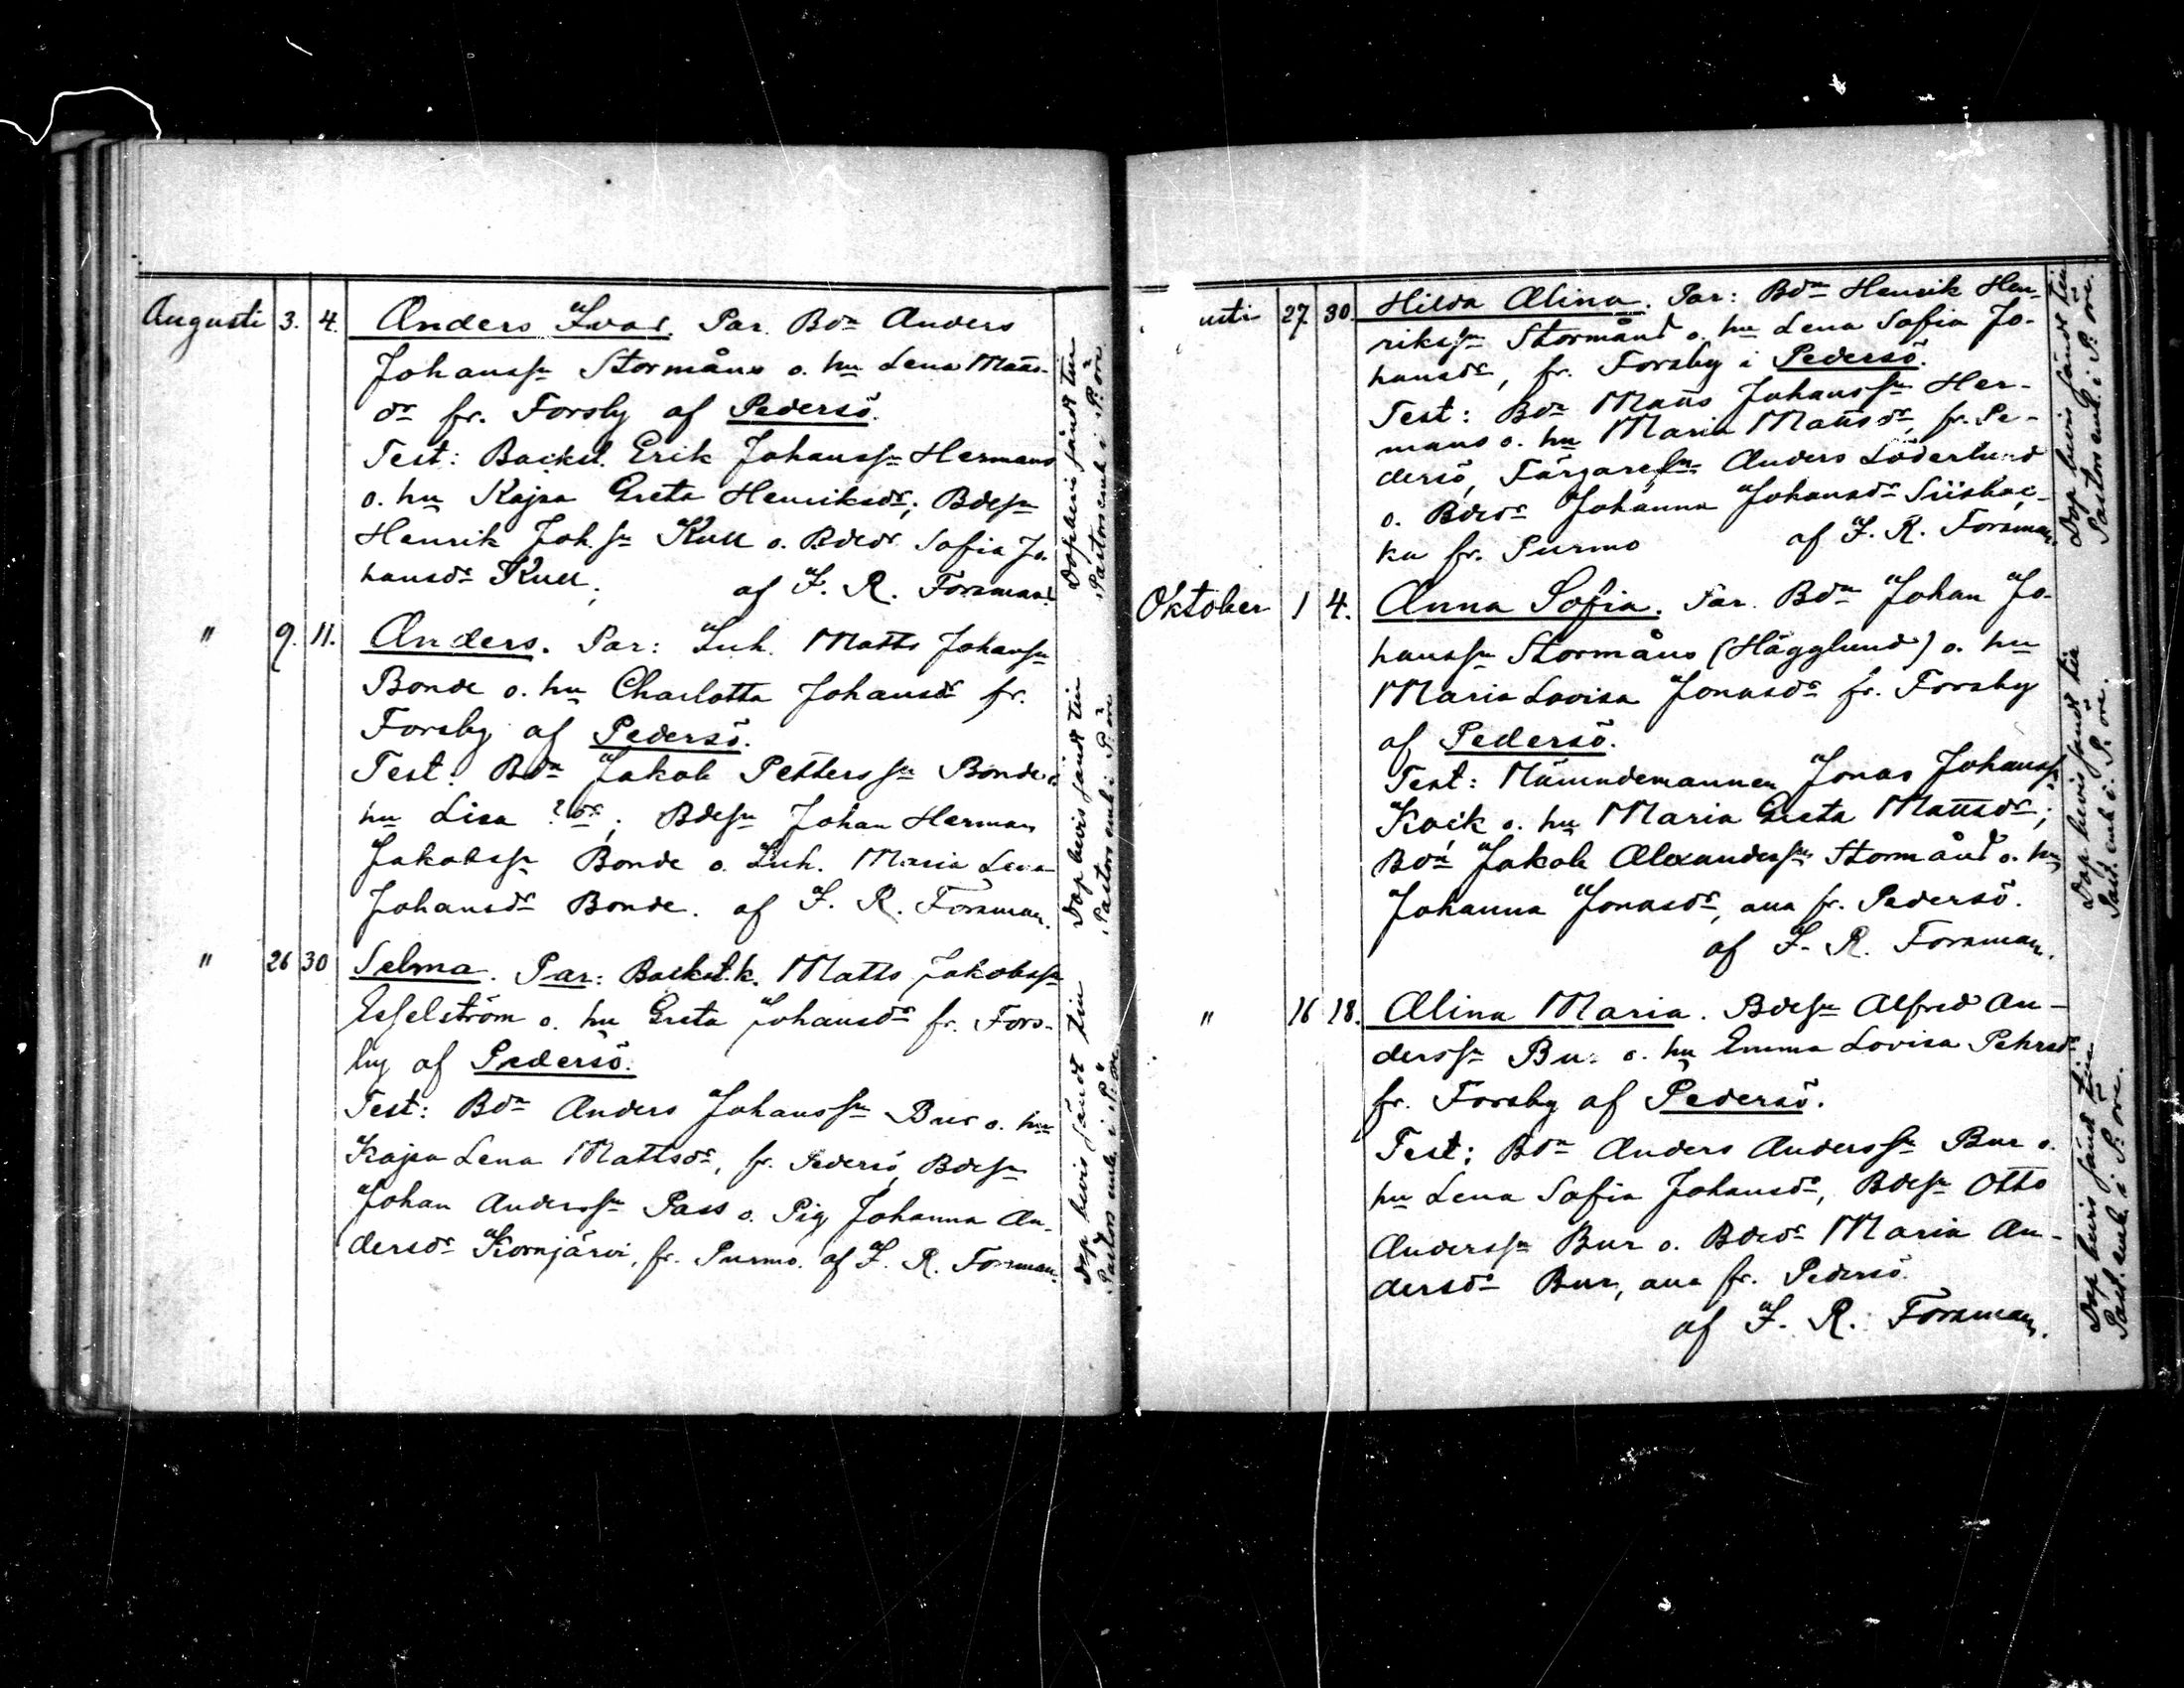 Augusti 3. 4. Anders Ivar. Par. Bdn Anders
Johanssn Stormåns o. hu Lena Matts-
dr fr. Forsby af Pedersö.
Test: Backst. Erik Johanssn Hermans
o. hu Kajsa Greta Henriksdr; Bdesn
Henrik Joh.sn Kull o. Bdedr Sofia Jo-
hansdr Kull; af F. R. Forsman.
Dopbevis sändt till
Pastorsemb. i P:öre
" 9. 11. Anders. Par: Inh. Matts Johanssn
Bonde o. hu Charlotta Johansdr fr.
Forsby af Pedersö.
Test: Bdn Jakob Petterssn Bonde o.
hu Lisa ? dr; Bdesn Johan Herman
Jakobssn Bonde o. Inh. Maria Lena
Johansdr Bonde. af F. R. Forsman.
Dop bevis sändt till
Pastorsemb. i P:öre
" 26 30 Selma. Par: Backst.k. Matts Jakobssn
Esselström o. hu Greta Johansdr fr. Fors-
by af Pedersö.
Test: Bdn Anders Johanssn Bur o. hu
Kajsa Lena Mattsdr, fr. Pedersö, Bdesn
Johan Anderssn Pass o. Pig Johanna An-
dersdr Kornjärvi, fr. Purmo. af F. R. Forsman.
Dop bevis sändt till
Pastors emb. i P:öre
usti 27 30 Hilda Alina. Par: Bdn Henrik Hen-
rikssn Stormånd o. hu Lena Sofia Jo-
hansdr, fr. Forsby i Pedersö.
Test: Bdn Matts Johanssn Her-
mans o. hu Maria Mattsdr, fr. Pe-
dersö, Färgaresn Anders Söderlund
o. Bdedr Johanna Johansdr Siisbac-
ka fr. Purmo af F. R. Forsman.
Dop bevis sändt till
Pastors emb. i P:öre.
Oktober 1 4. Anna Sofia. Par. Bdn Johan Jo-
hanssn Stormåns (Hägglund) o. hu
Maria Lovisa Jonasdr fr. Forsby
af Pedersö.
Test: Nämndemannen Jonas Johanssn
Kock o. hu Maria Greta Mattsdr;
Bdn Jakob Alexanderssn Stormånd o. hu
Johanna Jonasdr, alla fr. Pedersö.
af F. R. Forsman.
Dop bevis sändt till
Past. emb. i P:öre.
" 16 18. Alina Maria. Bdesn Alfred An-
derssn Bur o. hu Emma Lovisa Pehrsdr
fr. Forsby af Pedersö.
Test: Bdn Anders Anderssn Bur o.
hu Lena Sofia Johansdr, Bdesn Otto
Anderssn Bur o. Bdedr Maria An-
dersdr Bur, alla fr. Pedersö.
af F. R. Forsman.
Dop bevis sänd till
Past. emb. i P:öre.